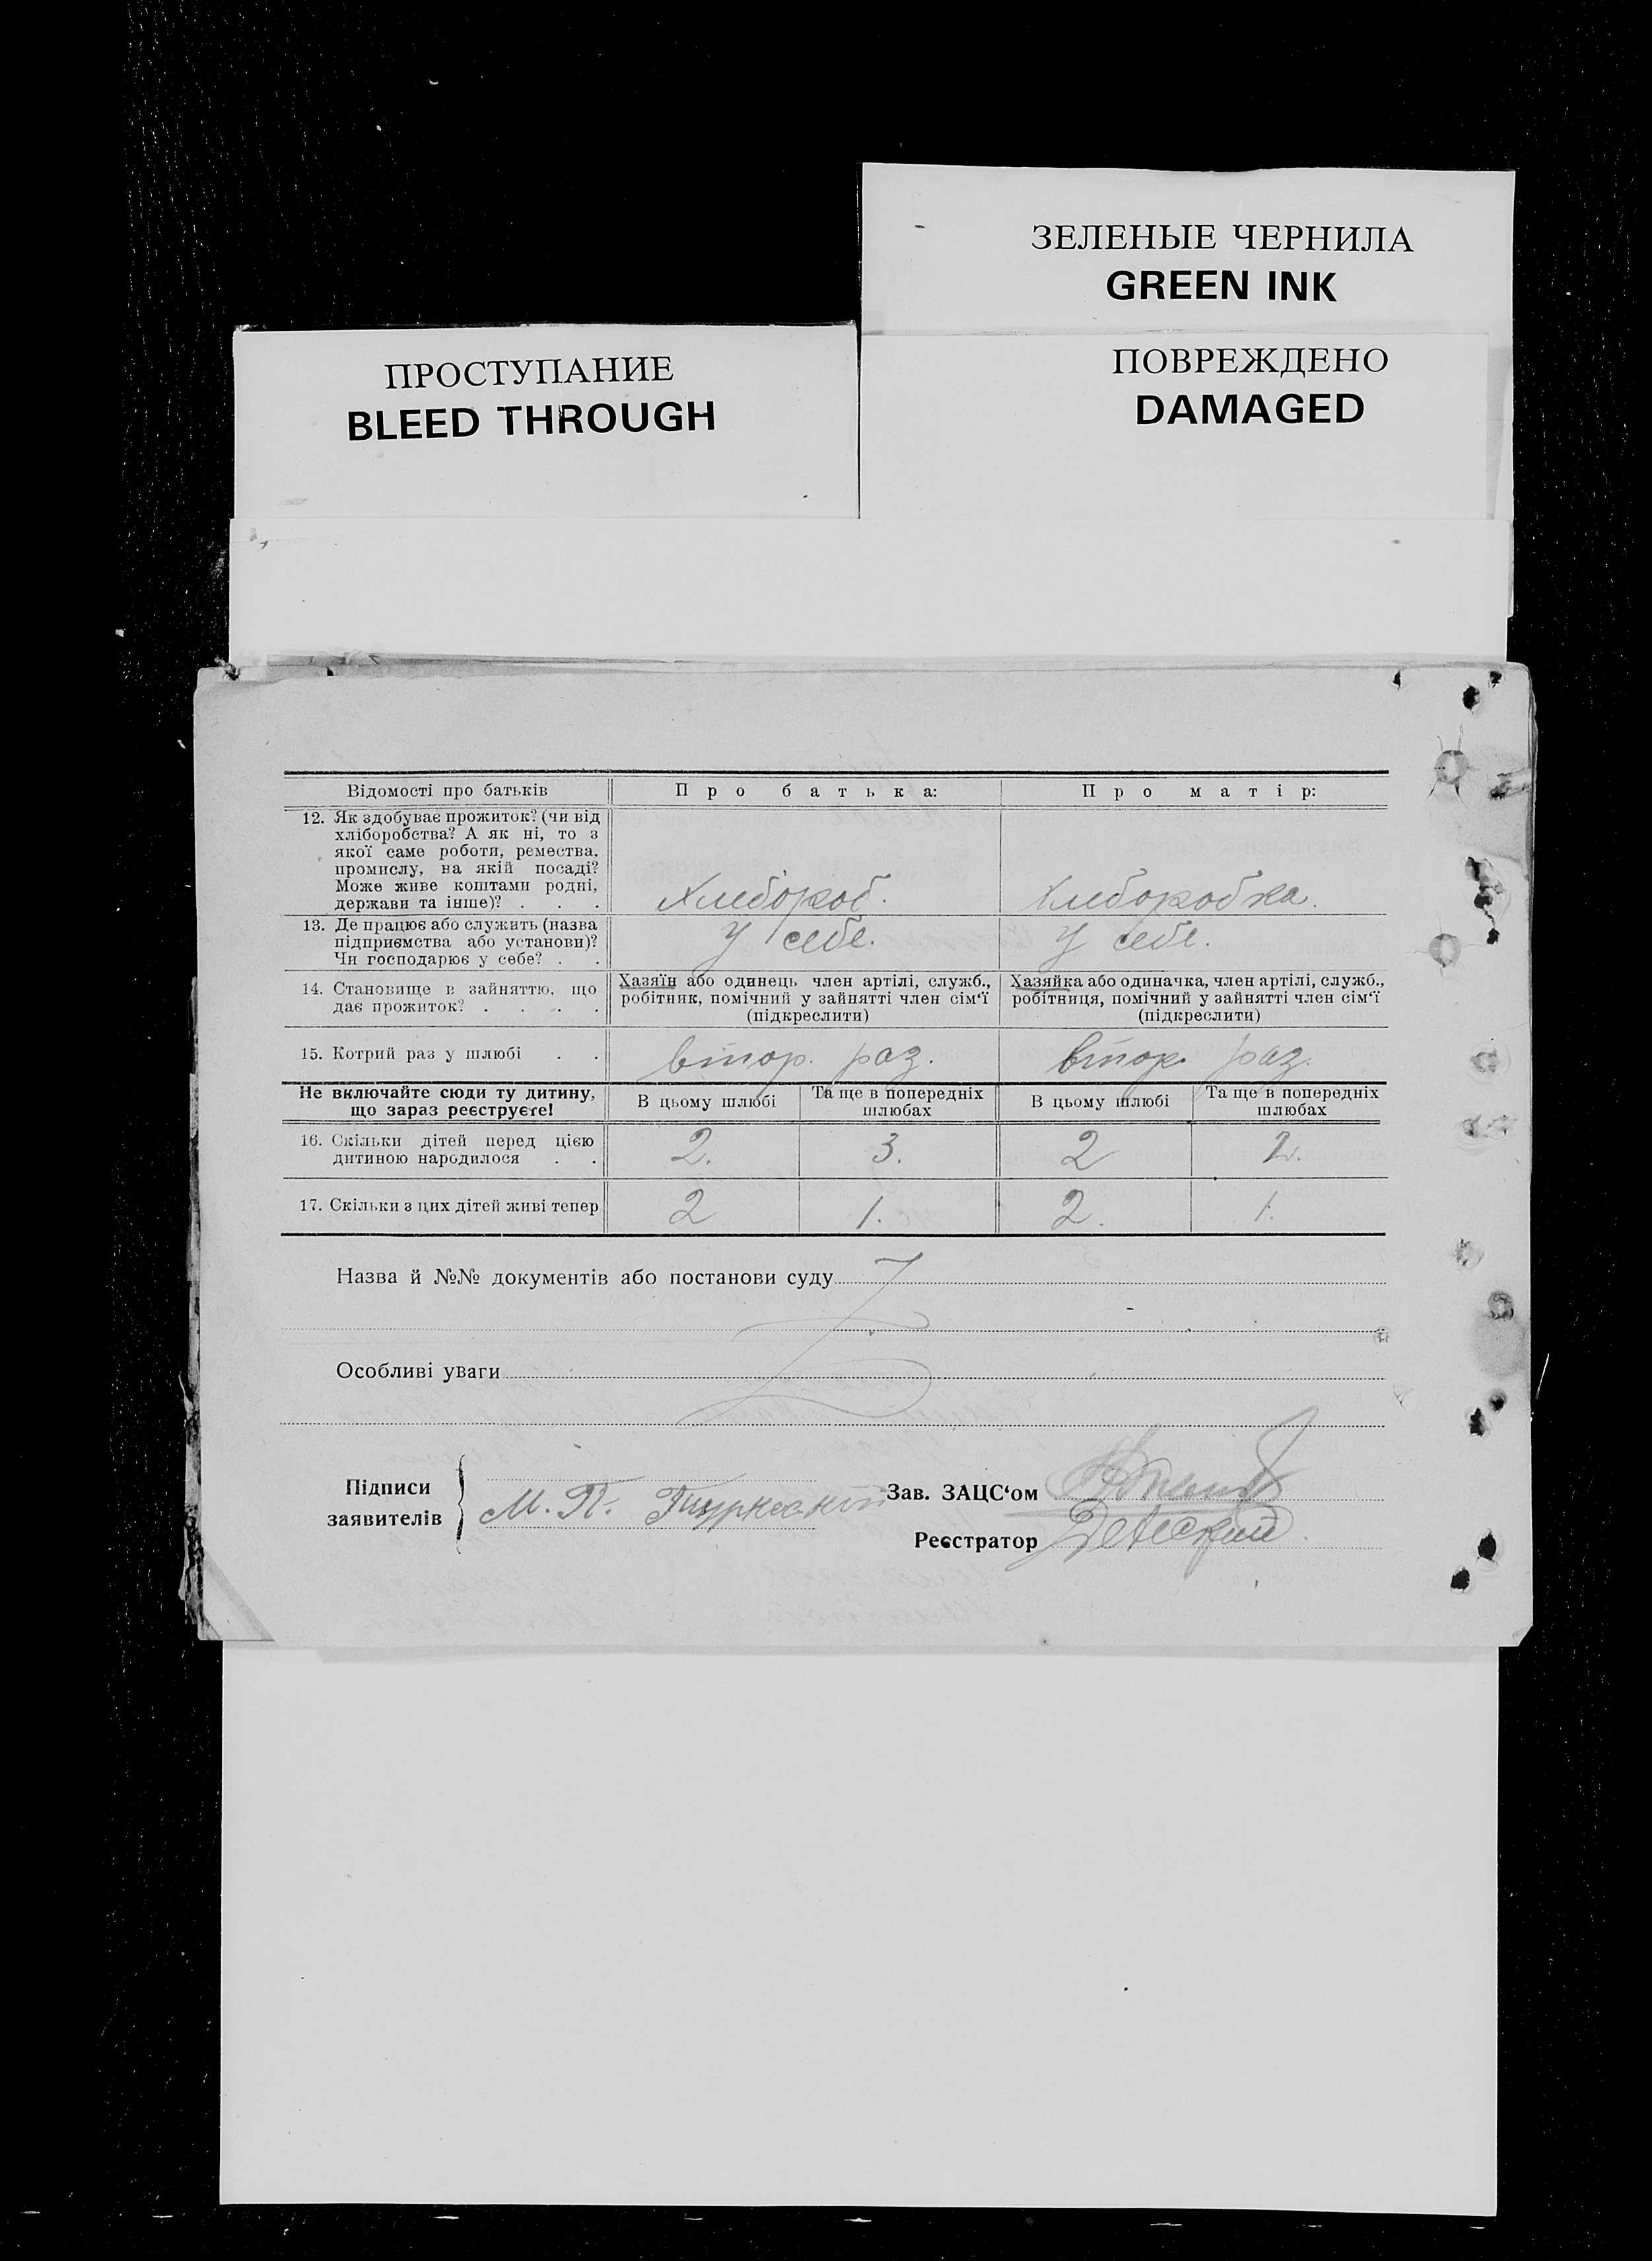 ЗЕЛЕНЫЕ ЧЕРНИЛА
GREEN INK
ПРОСТУПАНИЕ
BLEED THROUGH
ПОВРЕЖДЕНО
DAMAGED
Відомості про батьків Про батька: Про матір:
12. Як здобуває прожиток? (чи від
хліборобства? А як ні, то з
якої саме роботи, ремества,
промислу, на якій посаді?
Може живе коштами родні,
держави та інше)? . . .
Хлебороб. Хлеборобка.
13. Де працює або служить (назва
підприємства або установи)?
Чи господарює у себе? . .
У себе. У себе.
14. Становище в зайняттю, що
дає прожиток? . . . .
Хазяїн або одинець член артілі, служб.,
робітник, помічний у зайнятті член сім‘ї
(підкреслити)
Хазяйка або одиначка, член артілі, служб.,
робітниця, помічний у зайнятті член сім‘ї
(підкреслити)
15. Котрий раз у шлюбі . . втор. раз. втор. раз.
Не включайте сюди ту дитину,
що зараз реєструєте!
В цьому шлюбі
Та ще в попередніх
шлюбах
В цьому шлюбі
Та ще в попередніх
шлюбах
16. Скільки дітей перед цією
дитиною народилося . .
2. 3. 2
17. Скільки з цих дітей живі тепер 2 1. 2. 1.
Назва й №№ документів або постанови суду
Особливі уваги
Підписи
заявителів
М. П.
Зав. ЗАЦС‘ом
Реєстратор